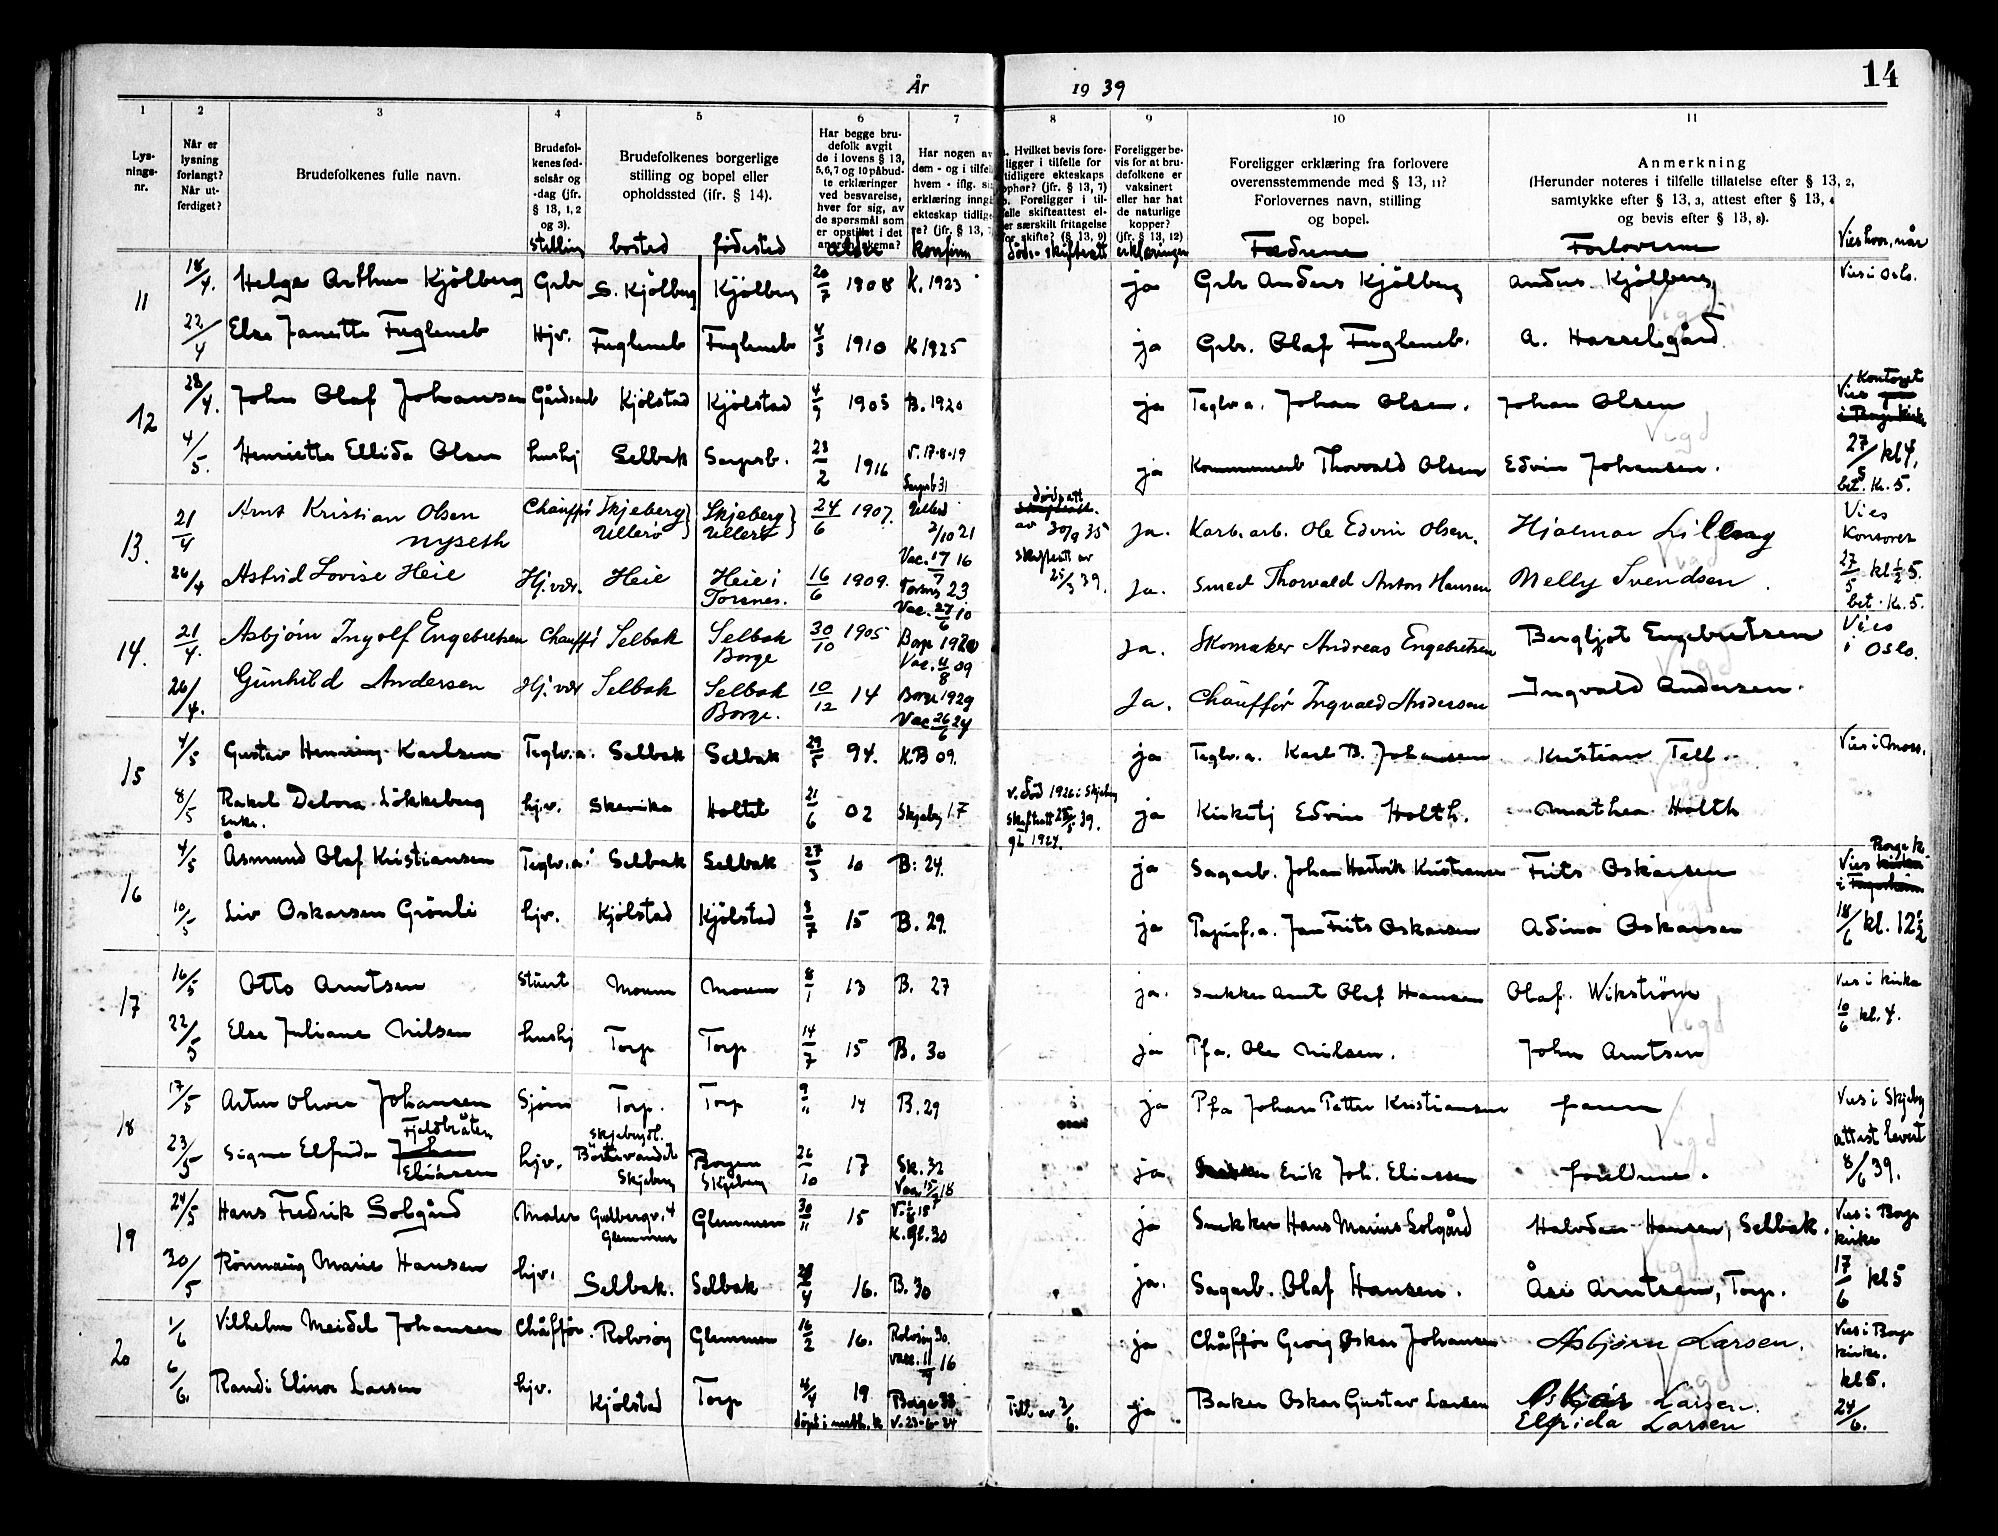 År 1939
14
1 2 3 4 5 6 7 8 9 10 11
Lys-
nings-
nr.
Når er
lysning
forlangt?
Når ut-
ferdiget?
Brudefolkenes fulle navn.
Brudefol-
kenes fød-
selsår og
-dag (jfr.
§ 13, 1, 2
og 3).
Brudefolkenes borgerlige
stilling og bopel eller
opholdssted (jfr. § 14).
Har begge bru-
defolk avgit
de i lovens § 13,
5, 6, 7 og 10 påbud-
te erklæringer
ved besvarelse,
hver for sig, av
de spørsmål som
er opstillet i det
Har nogen av
dem - og i tilfelle
hvem - iflg. si
erklæring inng
ekteskap tidlige
e? (jfr. § 13, 7
. Hvilket bevis fore-
ligger i tilfelle for
tidligere ekteskaps
ophør? (jfr. § 13, 7)
. Foreligger i til-
elle skifteattest el-
er særskil fritagelse
for skifte? (§ 13, 9)
Foreligger be-
vis for at bru-
defolkene er
vaksinert
eller har hat
de naturlige
kopper?
(jfr. § 13, 12)
Foreligger erklæring fra forlovere
overensstemmende med § 13, 11?
Forlovernes navn, stilling
og bopel.
Anmerkning
(Herunder noteres i tilfelle tillatelse efter § 13, 2,
samtykke efter § 13, 3, attest efter § 13, 4
og bevis efter § 13, 8).
bosted fødested alder konfirm Fædrene Forloverne Vies hvor, når
11 18/4. Helge Arthur Kjølberg Grbr S. Kjølberg Kjölberg 20/7 1908 K. 1923 ja Grbr Anders Kjölberg Anders Kjölberg Vies i Oslo.
22/4 Else Janette Fugleneb Hjv. Fugleneb Fugleneb 4/3 1910 K 1925 ja Grbr. Olaf Fugleneb. A. Hasselgård
12 28/4. John Olaf Johansen Gårdsarb Kjölstad Kjölstad 4/9 1905 B. 1920 ja Teglv.a. Johan Olsen. Johan Olsen Vies Kontoret
4/5. Henriette Ellida Olsen hushj Selbak Sarpsb. 23/2 1916 V. 17-8-19 Sarpsb 31 ja Thorvald Olsen Edvin Johansen. 27/5 kl 4, bet. Kr. 5.
13. 21/4 Arnt Kristian Olsen Nyseth Chauffør Skjeberg Ullerø Skjeberg Ullerø 24/6 1907. Ullerø 2/10 21 Vac. 17/7 16 av 30/9 35 Ja. Karb.arb. Ole Edvin Olsen. Hjalmar Lilleng Vies Kontoret
26/4 Astrid Lovise Heie Hj.vær. Heie Heie i Torsnes. 16/6 1909. Torsnes 23 Vac. 27/6 10 skifteatt av 25/3 39. Ja. Smed Thorvald Anton Hansen Nelly Svendsen. 27/5 kl ½ 5. bet. Kr. 5.
14. 21/4. Asbjørn Ingolf Engebretsen Chauffør Selbak Selbak Borge 30/10 1905 Borge 1920 Vac. 4/8 09 Ja. Skomaker Andreas Engebretsen Bergljot Engebretsen Vies i Oslo.
26/4. Gunhild Andersen Hj.vær Selbak Selbak Borge. 10/12 14 Borge 1929 Vac 26/6 24 Ja. Chauffør Ingvald Andersen Ingvald Andersen.
15 4/5 Gustav Henning Karlsen Teglv.a. Selbak Selbak 29/5 94. KB 09. ja Teglv.a. Karl B. Johansen Kristian Tell. Vies i Moss.
8/5 Rakel Debora Lökkeberg Enke. hjv. Skevika Holtet 21/6 02 Skjeberg 17 v. död 1926 i Skjeberg ja Edvin Holth. Mathea Holth
16 4/5 Åsmund Olaf Kristiansen Teglv.a. Selbak Selbak 27/3 10 B. 24. ja Sagarb. Johan Hartvik Kristiansen Frits Oskarsen Vies Borge k.
10/5 Liv Oskarsen Grönli hjv. Kjölstad Kjölstad 8/7 15 B. 29. ja Papirf.a. Jan Frits Oskarsen Adina Oskarsen 18/6 kl. 12½
17 16/5 Otto Arntsen Stuert Moum Moum 8/1 13 B. 27 ja. Snekker Arnt Olaf Hansen Olaf Wikström Vies i kirka
22/5 Else Juliane Nilsen hushj Torp Torp 14/7 15 B. 30 ja Pfa. Ole Nilsen. John Arntsen 10/6 kl. 4.
18 17/5 Artur Oliver Johansen Sjöm Torp. Torp 9/11 14 B. 29 ja Pfa Johan Petter Kristiansen faren Vies i Skjeberg
23/5 Signe Elfrida Fjeldbråten Eliasen hjv. Börtevandet Skjeberg Borgen Skjeberg 26/10 17 Sk. 32 Vac 15/7 18 ja Erik Joh. Eliassen foreldrene. attest levert 8/6 39.
19 24/5 Hans Fredrik Solgård Maler Gulbergv. 4 Glemmen Glemmen 30/11 15 K. Gl. 30 ja Snekker Hans Marius Solgård Halvdan Hansen, Selbak. Vies i Borge kirke
30/5 Rönnaug Marie Hansen hjv. Selbak. Selbak 16. B. 30 ja. Sagarb. Olaf Hansen. Åse Arntsen, Torp. 17/6 kl 5
20 1/6 Vilhelm Meidel Johansen Chåffør. Rolvsøy Glemmen 16/2 16. Rolvsøy 30. vacc. 11/9 16 ja Chåffør Georg Oskar Johansen Asbjørn Larsen. Vies i Borge kirke.
6/6. Randi Elinor Larsen hjv. Kjölstad Torp 4/4 19 döpt i meth. k Borge 33 V. 23-6-24 Till. av 2/6. ja Baker Oskar Gustav Larsen Oskar Larsen. Elfrida Larsen kl 5. 24/6.
Vigd